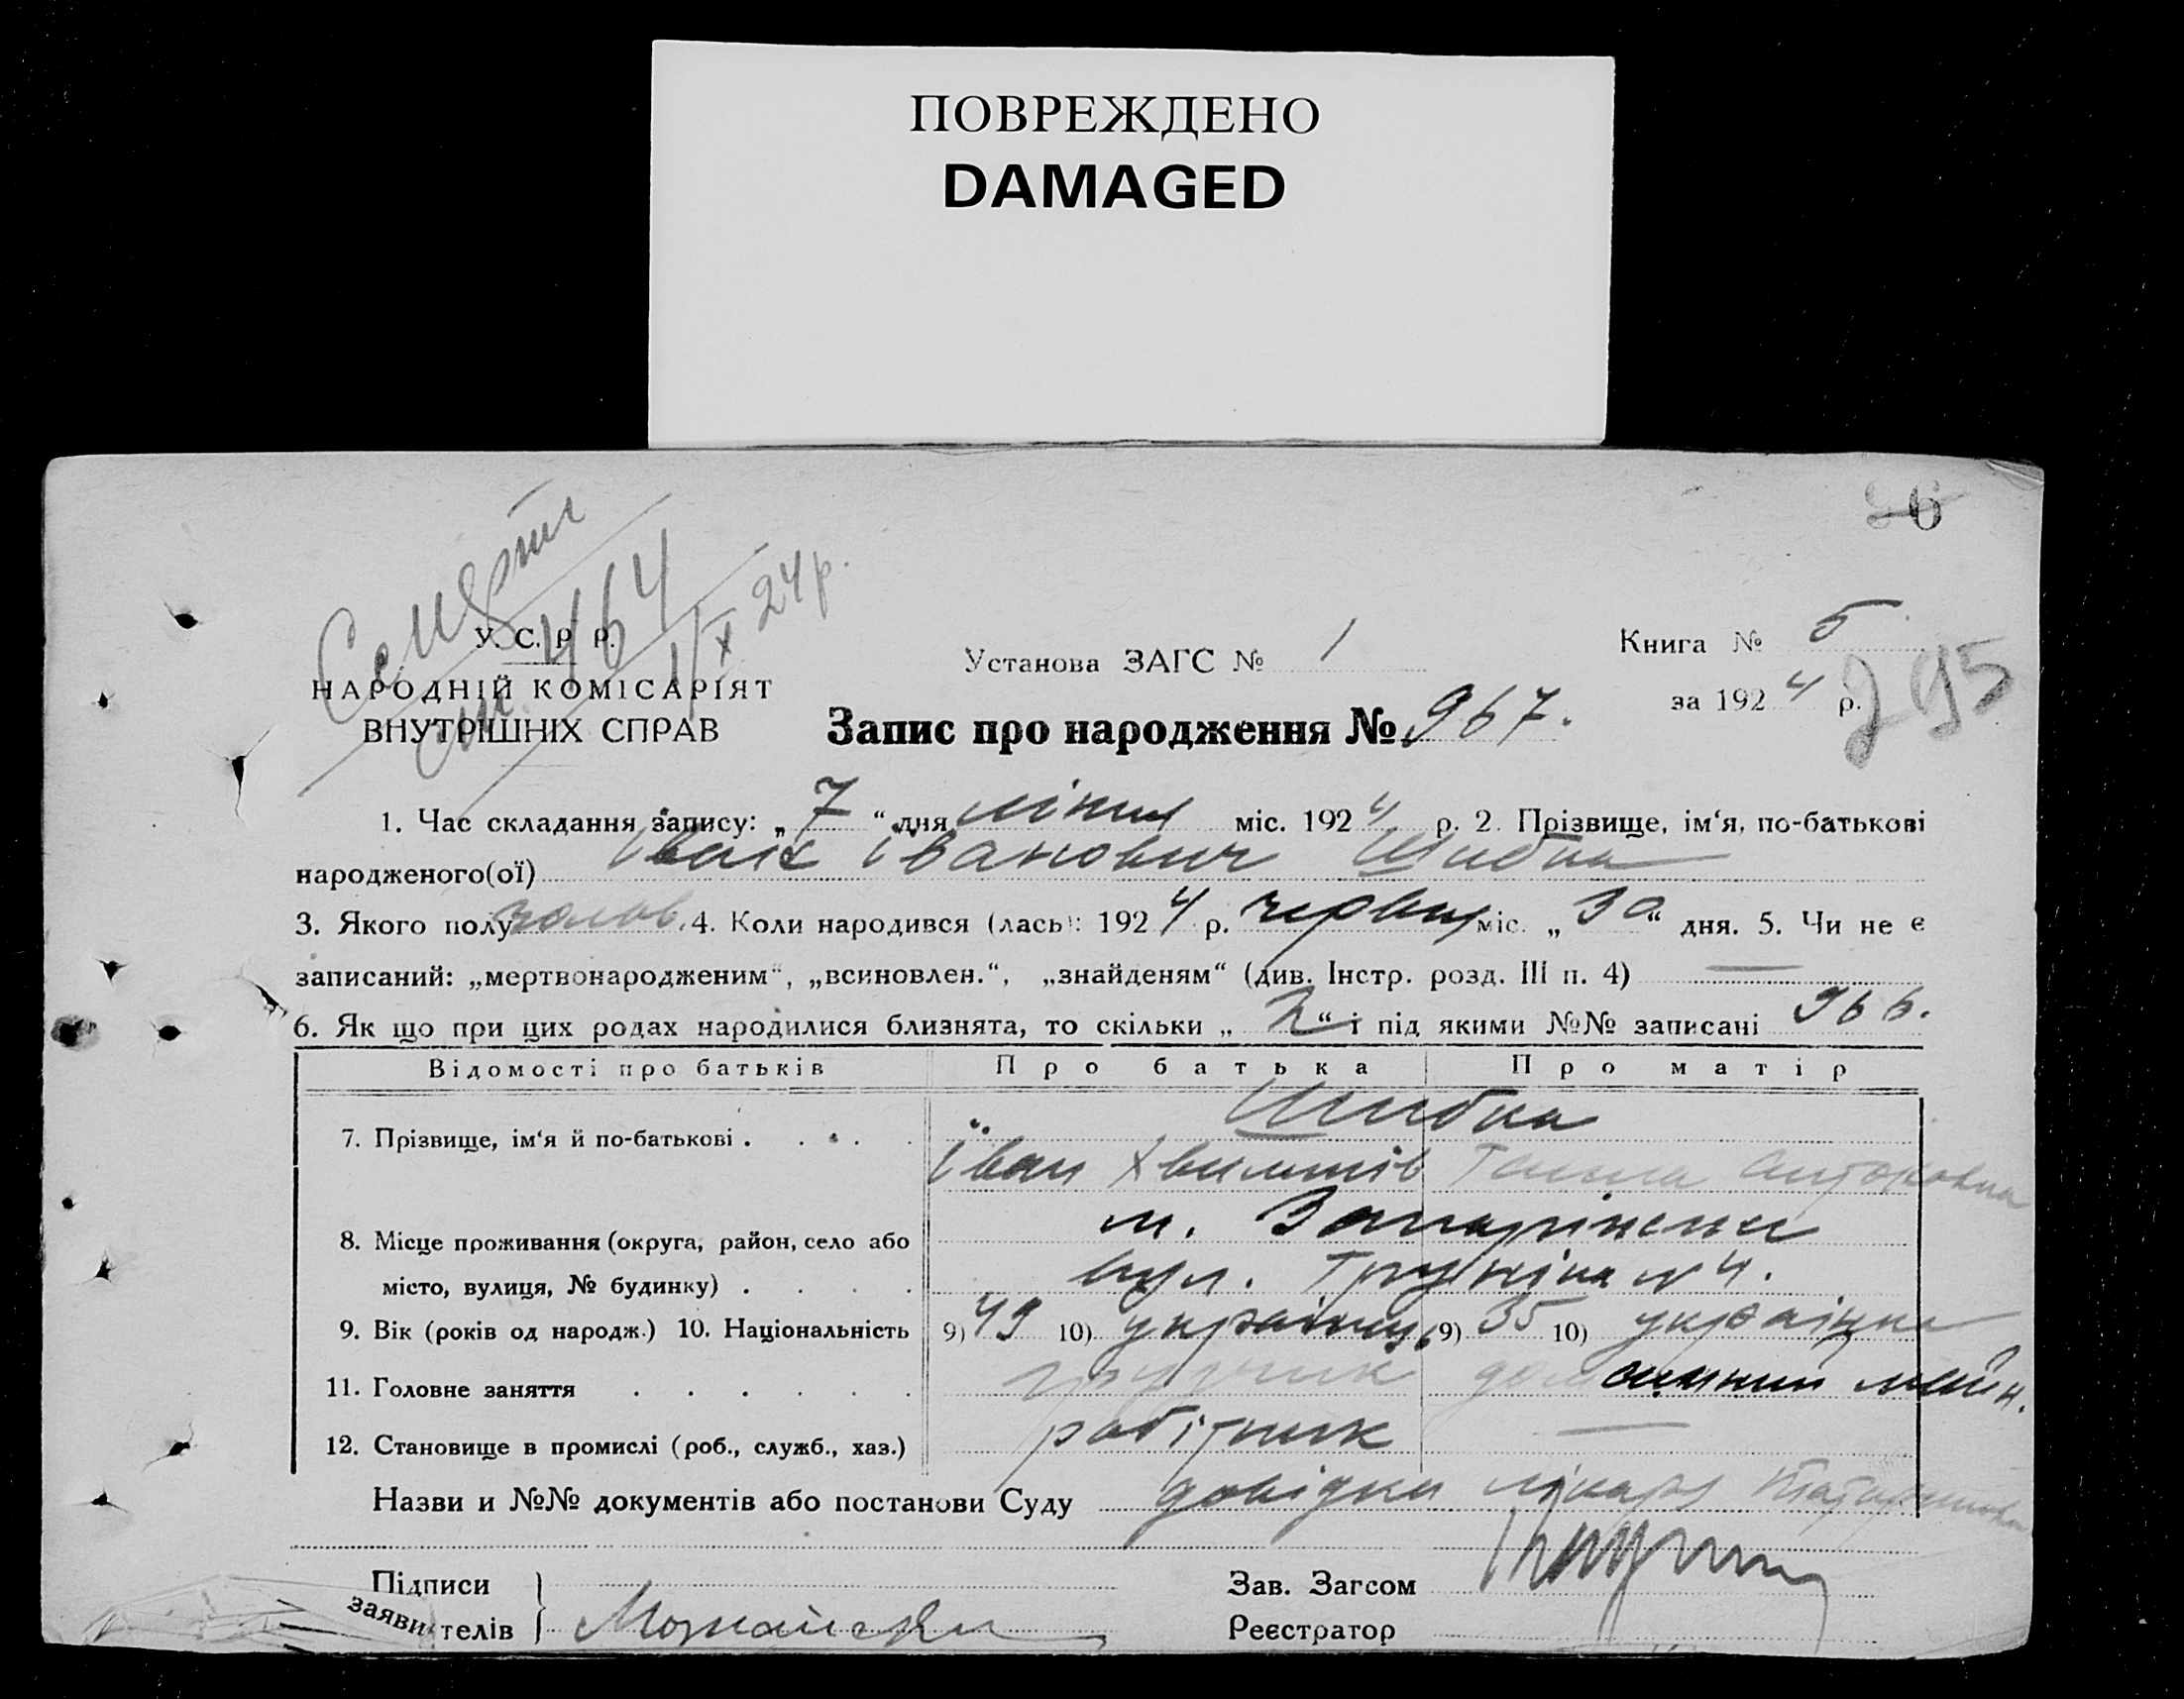 ПОВРЕЖДЕНО
DAMAGED
6
Смерть
464
1/X 24р.
У. С. Р. Р.
НАРОДНІЙ КОМІСАРІЯТ
ВНУТРІШНІХ СПРАВ
Установа ЗАГС № 1
Книга № 5
за 1924 р.
295
Запис про народження № 967.
1. Час складання запису: „7“ дня липня міс. 1924 р. 2. Прізвище, ім‘я, по-батькові
народженого(ої) Іван Іванович Шибка
3. Якого полу чолов. 4. Коли народився (лась): 1924 р. червня міс. „30“ дня. 5. Чи не є
записаний: „мертвонародженим“, „всиновлен.“, „знайденям“ (див. Інстр. розд. III п. 4) —
6. Як що при цих родах народилися близнята, то скільки „2“ і під якими №№ записані 966.
Відомості про батьків Про батька Про матір
7. Прізвище, ім‘я й по-батькові . . . . . Шибка
Іван Тетяна Антоновна
8. Місце проживання (округа, район, село або м.
місто, вулиця, № будинку) . . . . вул. № 4.
9. Вік (років од народж.) 10. Національність 9) 49 10) українец 9) 35 10) українка
11. Головне заняття . . . . . . грузчик
12. Становище в промислі (роб., служб., хаз.) робітник —
Назви и №№ документів або постанови Суду довідка лікаря
Підписи
заявителів
Зав. Загсом
Реєстратор